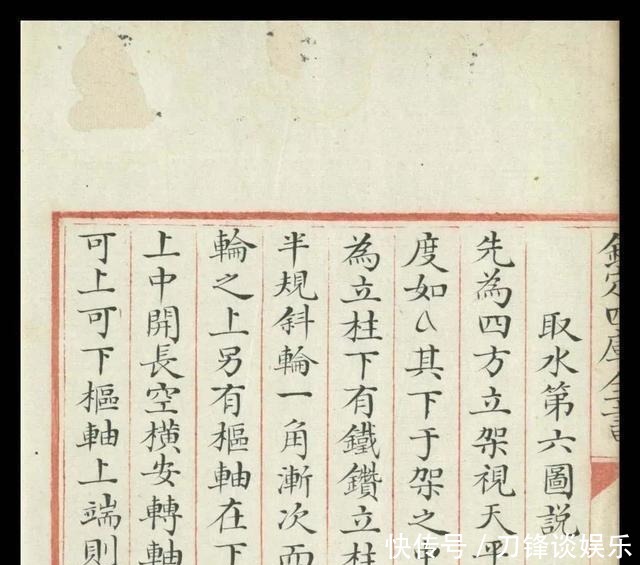 欽定四庫全書
取水第六圖說
先為四方立架視天平
度如八其下于架之中
為立柱下有鐵鑽立柱
半規斜輪一角漸次而
輪之上另有樞軸在下
上中開長空橫安轉軸
可上可下樞軸上端則
快传号/刀锋谈娱乐